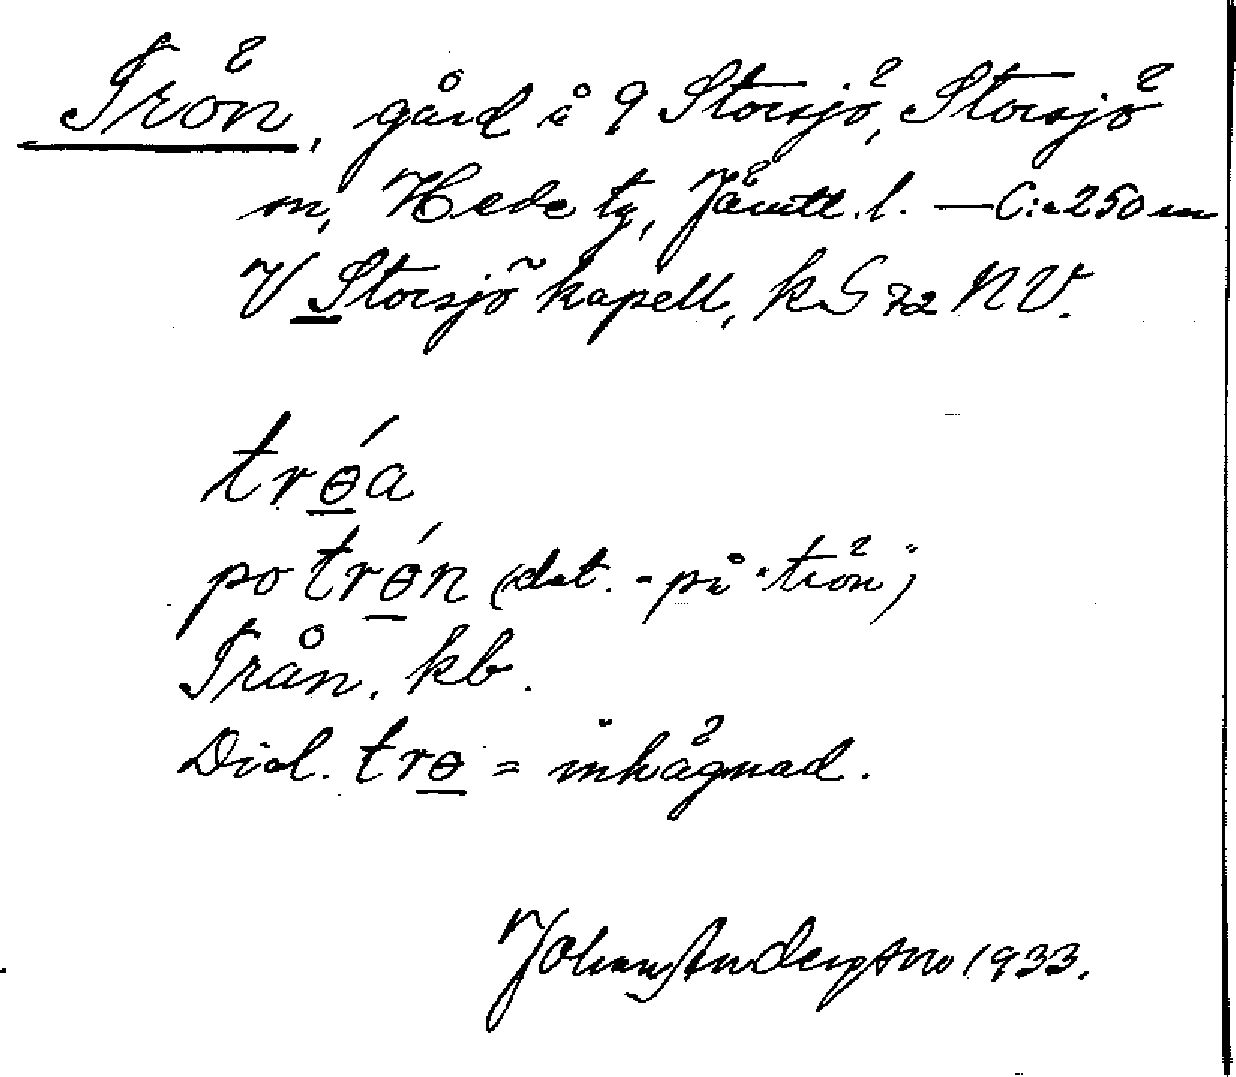 Trön, gård å 9 Storsjö, Storsjö
sn, Hede tg, Jämtl. l. — C:a 250 m
V Storsjö kapell, k G 72 NV.
trɵ́a
po trɵ́n (dat. - på "trön")
Trån, kb.
Dial. trɵ = inhägnad.
Johan Anderson 1933.